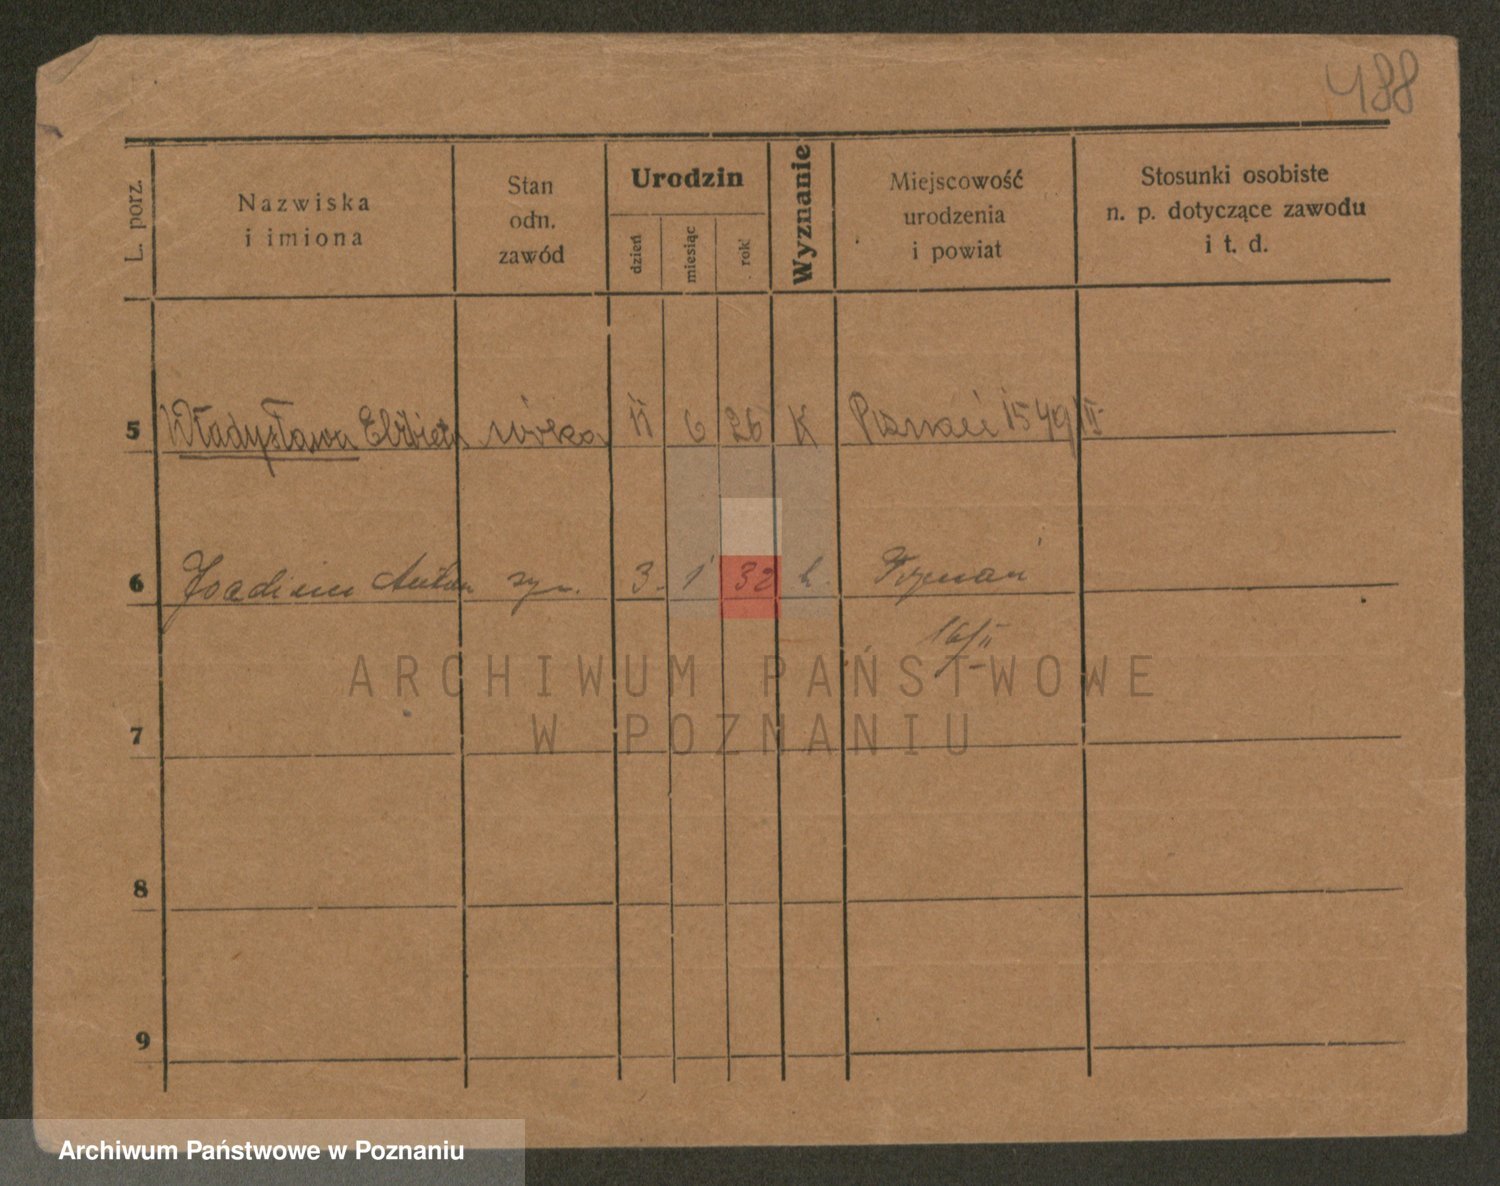 438
L. porz.
Nazwiska
i imiona
Stan
odn.
zawód
Urodzin
dzień
miesiąc
rok
Wyznanie
Miejscowość
urodzenia
i powiat
Stosunki osobiste
n. p. dotyczące zawodu
i t. d.
5 Władysława Elżbieta córka 11 6 26 K Poznań 1549/II
6 Joachim Antoni syn. 3. 1 32 k. Poznań
16/II
ARCHIWUM PAŃSTWOWE
W POZNANIU
7
8
9
Archiwum Państwowe w Poznaniu